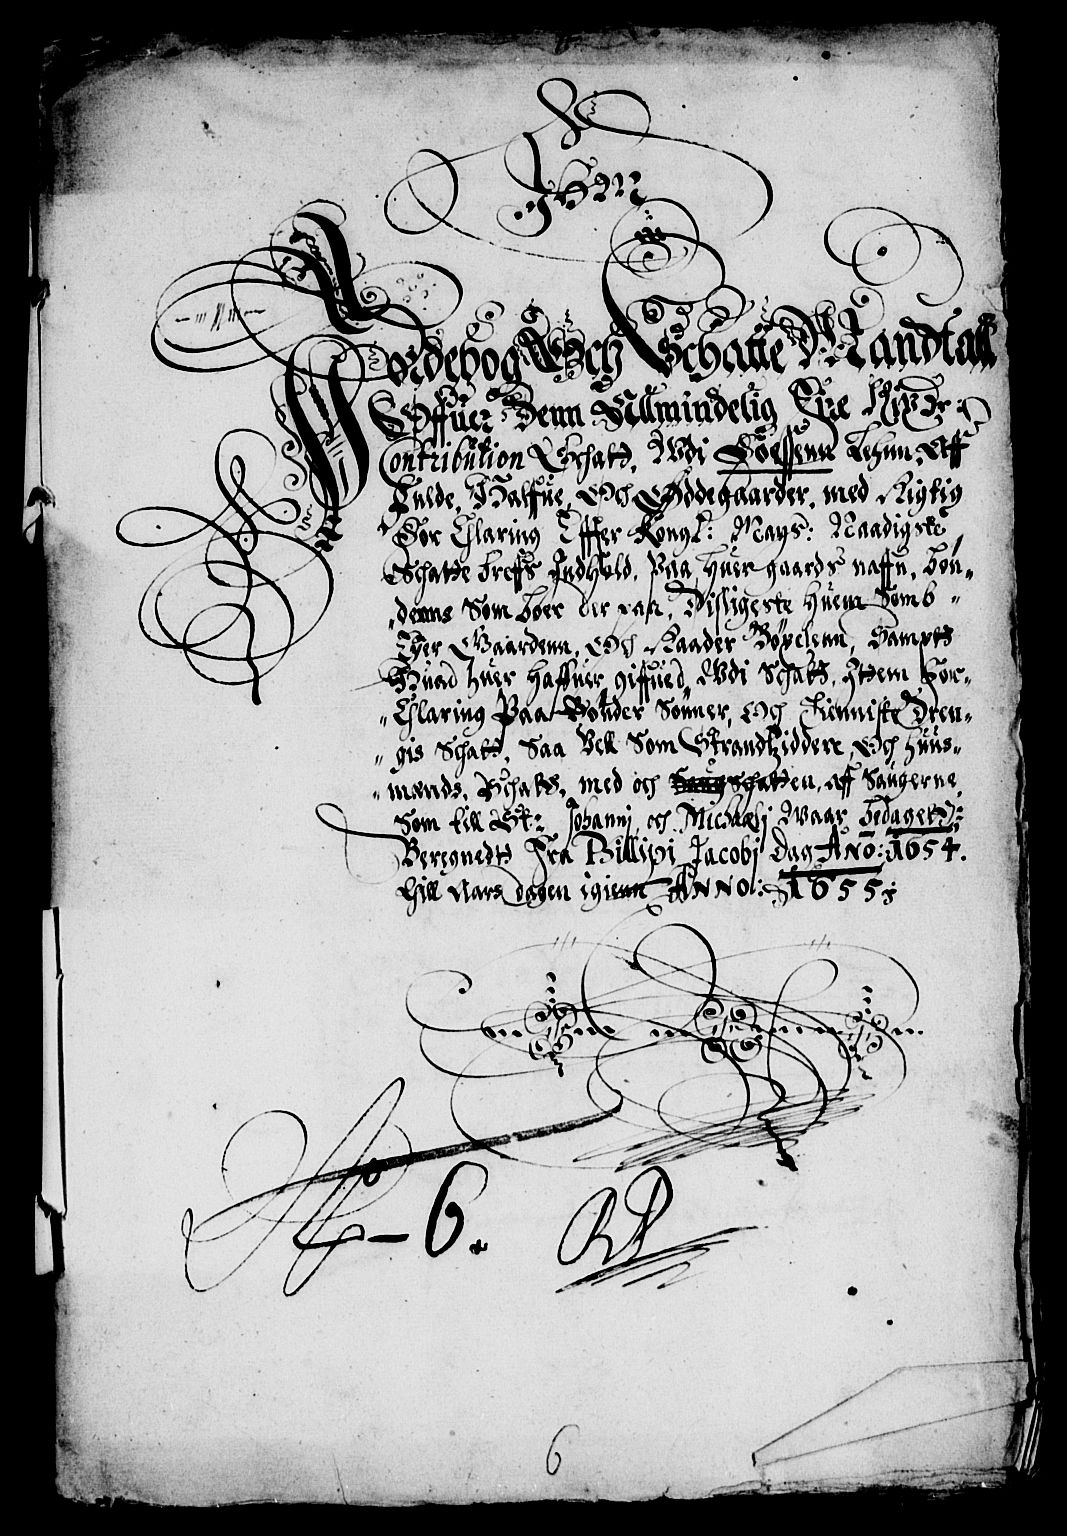 Jordebog Och Schatte Mandtall
Offuer Denn Allmindelig Fire Rixdr:
Contribution Schatt, Udi Foessenn Lehnn, Aff
Fulde, Halfue, Och Øddegaarder, med Rigtig
For Claring Effter Kongl: Mays: Naadigste
Schatte breffs Indhold, Paa huer gaards naffn, bøn„
„dernis Som boer der paa, Disligeste huem Som b„
Eyer Gaardenn, Och Raader Bøxelenn, Sampt
Huad huer haffuer giffued, Udi Schatt, Ittem For„
„Claring Paa Bønder Sønner, Och Tienniste Dren„
„gis Schatt, Saa Vell Som Strandsiddere, Och Huus„
„mænds, Schatt, med och Schatten, aff Saugerne,
Som till St: Johannj och Michaelj Waar bedaget:
Beregnedt Fra Phillipi Jacobj Dag Ano: 1654.
till Aars dagen igienn Anno: 1655:
No – 6.
6